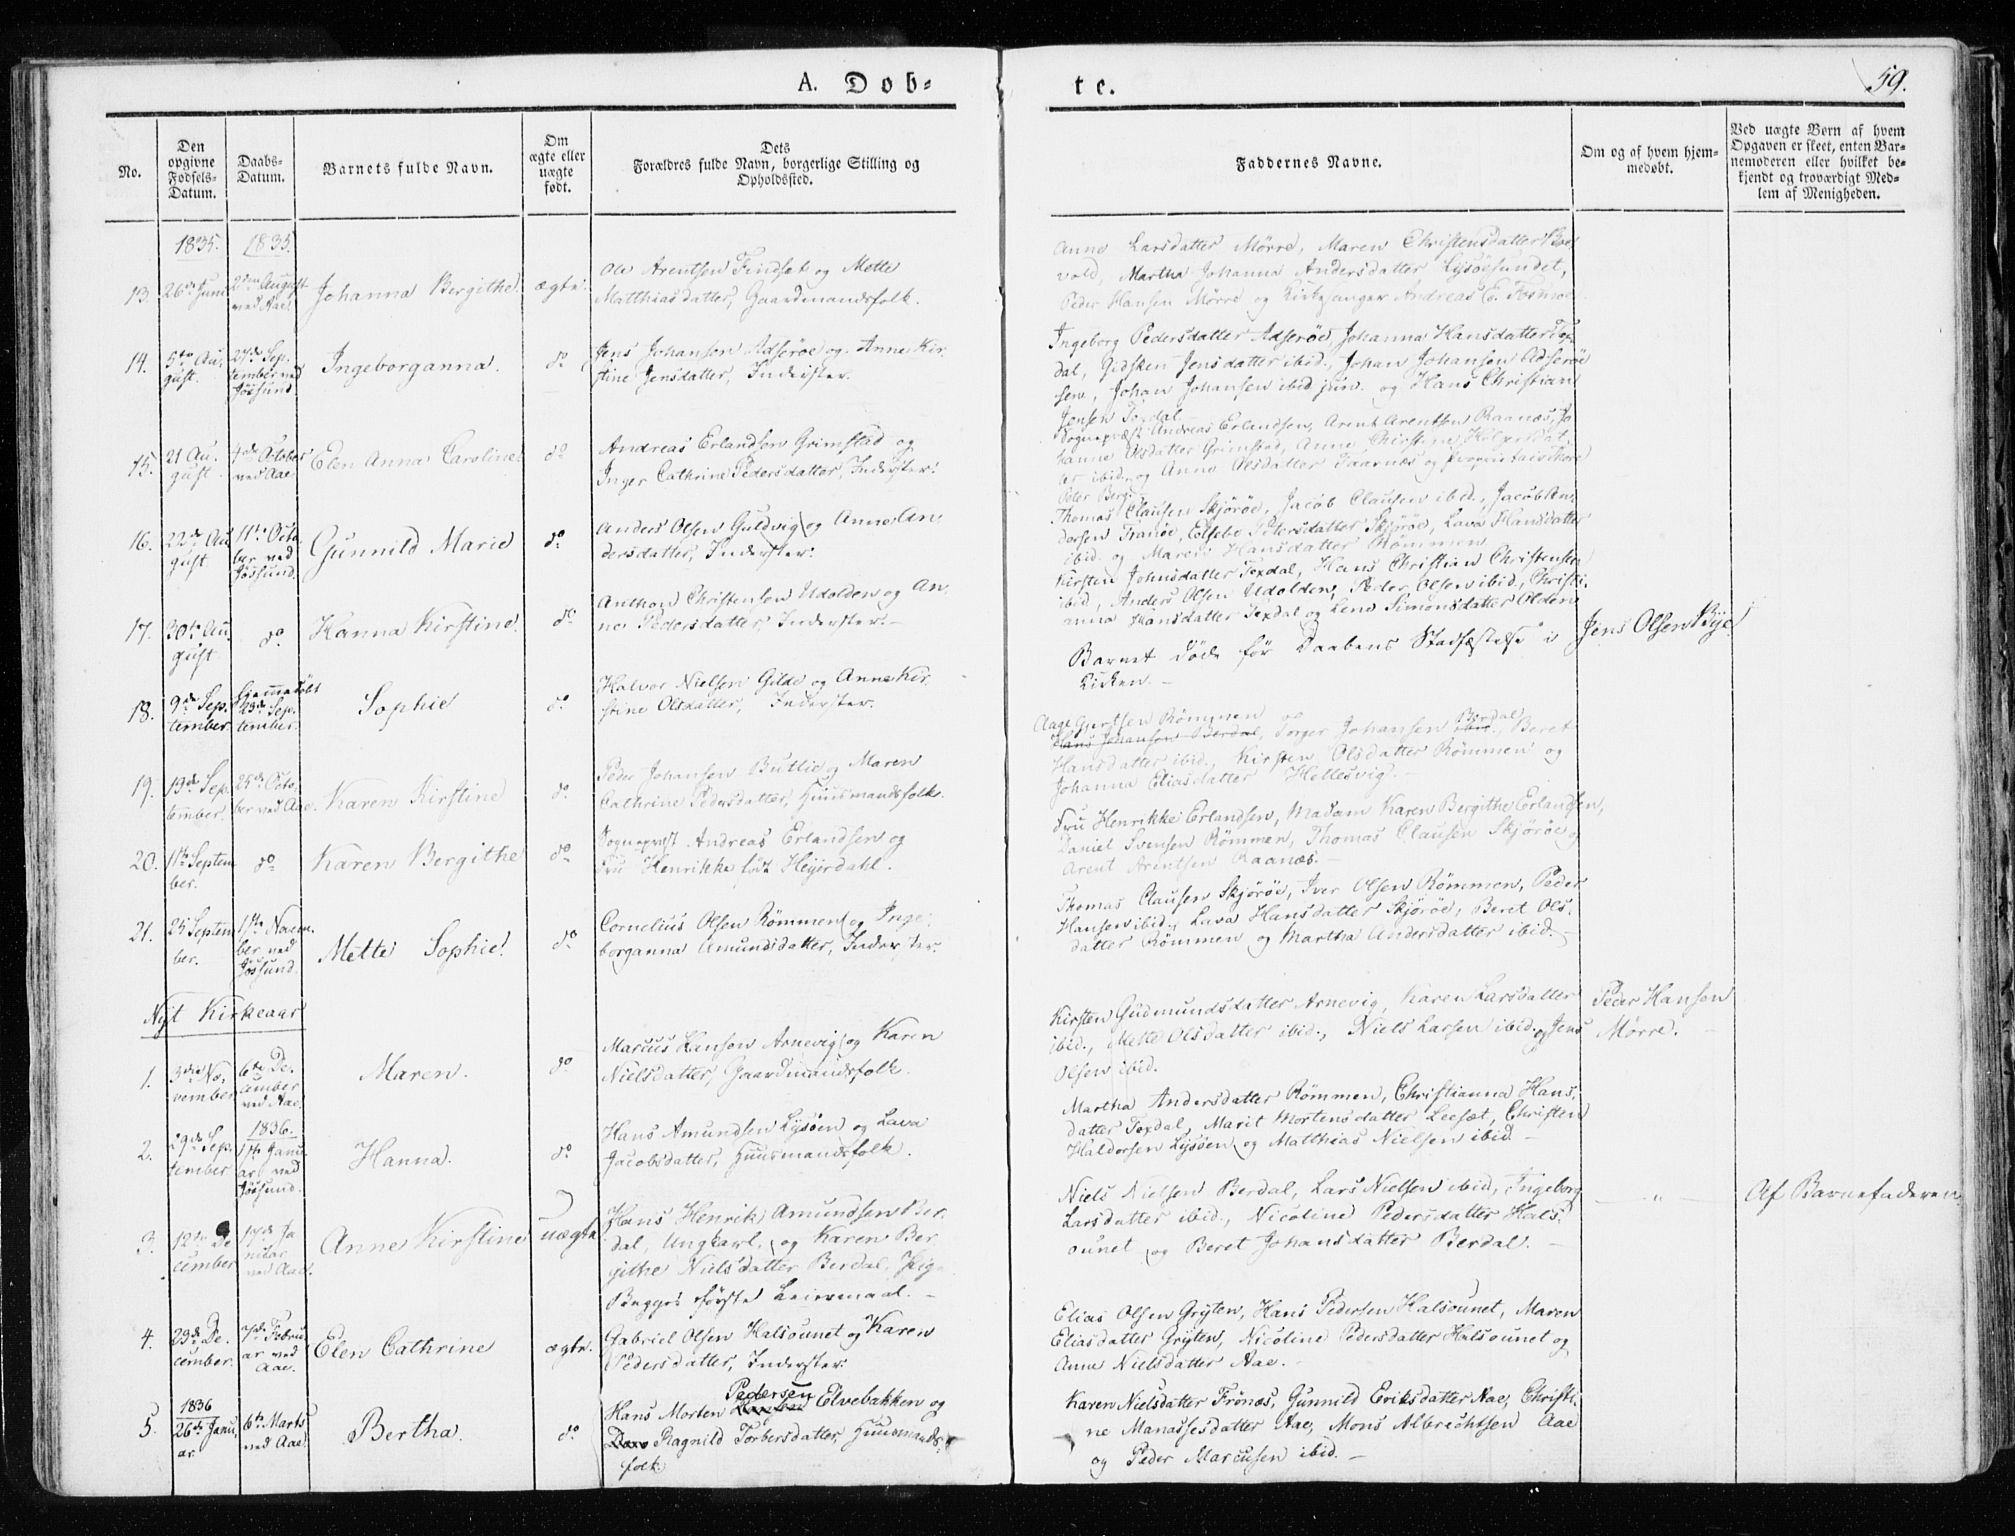 A. Døb-
te.
59.
No.
Den opgivne Fødsels-Datum.
Daabs-Datum.
Barnets fulde Navn.
Om ægte eller uægte født.
Dets
Forældres fulde Navn, borgerlige Stilling og
Opholdssted.
Faddernes Navne.
Om og af hvem hjem-
medøbt.
Ved uægte Børn af hvem
Opgaven er skeet, enten Bar-
nemoderen eller hvilket be-
kjendt og troværdigt Med-
lem af Menigheden.
1835.
1835.
13.
26de Juni
August
ved Aae.
Johanna Bergithe
ægte.
Ole Arentsen Findset og Mette
Matthiasdatter, Gaardmandsfolk.
Anne Larsdatter Mørre, Maren Christensdatter
vold, Martha Johanna Andersdatter Lysøesundet,
Peder Hansen Mørre og Kirkesanger Andreas E. Fosmoe
14.
5te Au-
gust.
27de Sep-
tember ved
Jøssund
Ingeborganna.
do
Jens Johansen Adserøe og Anne Kir-
stine Jensdatter, Inderster.
Ingeborg Pedersdatter Adserøe, Johanna Hansdatter Tex-
dal, Gidsken Jensdatter ibid., Johan Johansen Adserøe
sen, Johan Johansen ibid jun. og Hans Christian
Jensen Texdal.
15.
21 Au-
gust.
4de October
ved Aae
Elen Anna Caroline
do
Andreas Erlandsen Grimstad og
Inger Cathrine Pedersdatter, Inderster.
Sognepræst Andreas Erlandsen, Arent Arentsen Raanæs, Jo-
hanne Olsdatter Grimstad, Anne Chirstine Holgersdat-
ter ibid. og Anne Olsdatter Faarnæs og Proprietair Thore
Peter Berg.
16.
22de Au-
gust
11te Octo-
ber ved
Jøssund.
Gunnild Marie
do
Anders Olsen Guldvig og Anne An-
dersdatter, Inderster.
Thomas Clausen Skjørøe, Jacob Clausen ibid., Jacob An-
dersen Tranøe, Elsebe Petersdatter Skjørøe, Lava Hansdatter
ibid. og Maren Hansdatter Rømmen
17.
30te Au-
gust
do
Hanna Kirstine.
do
Anthon Christensen Udolden og An-
ne Pedersdatter, Inderster.
Kirsten Johnsdatter Texdal, Hans Christian Christensen
ibid., Anders Olsen Udolden, Peder Olsen ibid., Christi-
anna Hansdatter Texdal og Lena Simonsdatter Olden
18.
9de Sep-
tember.
Hjemmedøbt
23de Sep-
tember.
Sophie
do
Halvor Nielsen Gilde og Anne Kir-
stine Olsdatter, Inderster.
Barnet døde før Daabens Stadfæstelse i
Kirken.
Jens Olsen Bye
19.
13de Sep-
tember.
25de Octo-
ber ved Aae.
Karen Kirstine
do
Peder Johansen Butlie og Maren
Cathrine Pedersdatter, Huusmandsfolk.
Aage Gjertsen Rømmen
Hans Johansen Berdal, Torger Johansen ibid. Berdal, Beret
Hansdatter ibid., Kirsten Olsdatter Rømmen og
Johanna Eliasdatter Hellesvig.
20.
11te Septem-
ber.
do
Karen Bergithe
do
Sognepræst Andreas Erlandsen og
Fru Henrikke født Heyerdahl.
Fru Henrikke Erlandsen, Madam Karen Bergithe Erlandsen,
Daniel Svensen Rømmen, Thomas Clausen Skjørøe og
Arent Arentsen Raanæs.
21.
25 Septem-
ber.
1ste Novem-
ber ved
Jøssund.
Mette Sophie
do
Cornelius Olsen Rømmen og Inge-
borganna Amundsdatter, Inderster.
Thomas Clausen Skjørøe, Iver Olsen Rømmen, Peder
Hansen ibid., Lava Hansdatter Skjørøe, Beret Ols-
datter Rømmen og Martha Andersdatter ibid.
Nyt Kirkeaar
1.
3die No-
vember
6te De-
cember
ved Aae.
Maren.
do
Marcus Hansen Arnevig og Karen
Nielsdatter, Gaardmandsfolk.
Kirsten Gudmundsdatter Arnevig, Karen Larsdatter
ibid., Mette Olsdatter ibid., Niels Larsen ibid. og Jens
Olsen ibid.
Peder Hansen
Mørre.
2.
29de Sep-
tember
1836.
1ste Janu-
ar ved
Jøssund.
Hanna.
do
Hans Amundsen Lysøen og Lava
Jacobsdatter, Huusmandsfolk.
Martha Andersdatter Rømmen, Christianna Hans-
datter Texdal, Marit Mortensdatter Leesæt, Christen
Haldorsen Lysøen og Matthias Nielsen ibid.
3.
12te De-
cember
17de Ja-
nuar
ved Aae.
Anne Kirstine
uægte
Hans Henrik Amundsen Ber-
dal, Ungkarl, og Karen Ber-
githe Nielsdatter Berdal, Pige
Begges første Leiermaal.
Niels Nielsen Berdal, Lars Nielsen ibid, Ingeborg
Larsdatter ibid., Nicoline Pedersdatter Hals-
ounet og Beret Johansdatter Berdal.
— " —
Af Barnefaderen.
4.
29de De-
cember.
7de Febru-
ar ved
Aae.
Elen Cathrine
ægte.
Gabriel Olsen Halsounet og Karen
Pedersdatter, Inderster.
Elias Olsen Gryten, Hans Pedersen Halsounet, Maren
Eliasdatter Gryten, Nicoline Pedersdatter Halsounet og
Anne Nielsdatter Aae.
5.
1836
26de Janu-
ar.
6te Marts
ved Aae.
Bertha.
do
Hans Morten Hansen Pedersen Elvebakken og
Ragnild Torbersdatter, Huusmands-
folk.
Karen Nielsdatter Frønæs, Gunnild Eriksdatter Aae, Christi-
ne Manassesdatter Aae, Mons Albrechtsen Aae
og Peder Marcusen ibid.